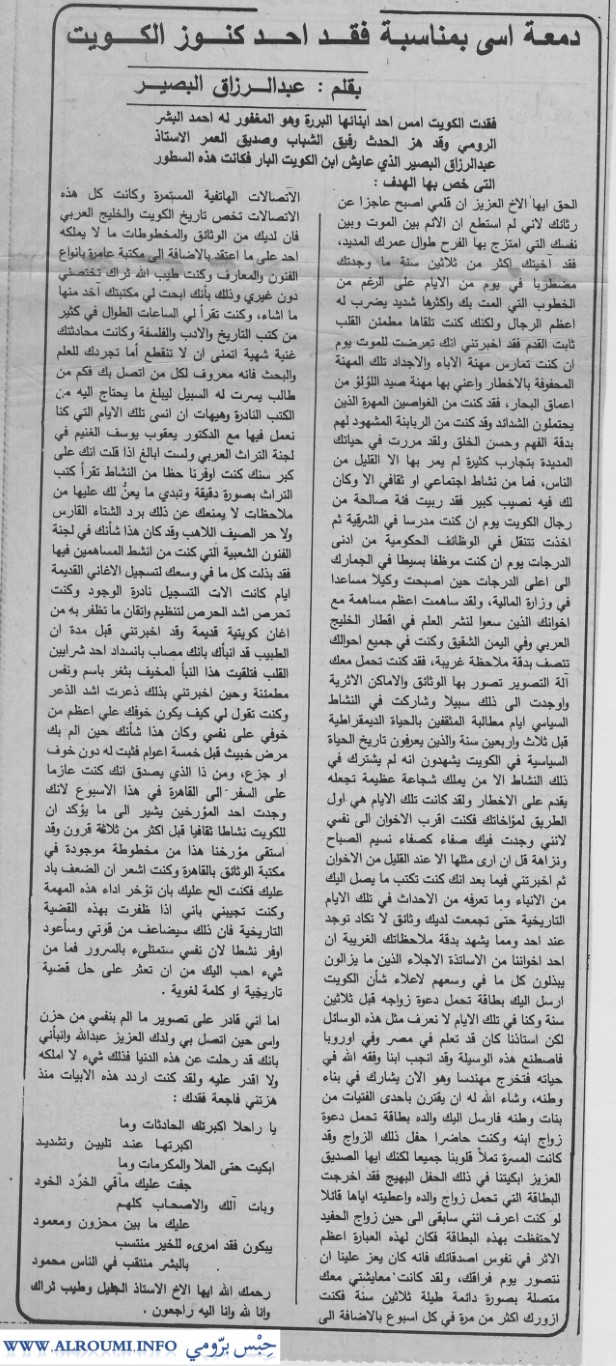 دمعة اسى بمناسبة فقد احد كنوز الكويت
بقلم : عبدالرزاق البصير
فقدت الكويت امس احد ابنائها البررة وهو المغفور له احمد البشر
الرومي وقد هز الحدث رفيق الشباب وصديق العمر الاستاذ
عبدالرزاق البصير الذي عايش ابن الكويت البار فكانت هذه السطور
التى خص بها الهدف :
الحق ايها الاخ العزيز ان قلمي اصبح عاجزا عن
رثائك لاني لم استطع ان الائم بين الموت وبين
نفسك التي امتزج بها الفرح طوال عمرك المديد،
فقد آخيتك اكثر من ثلاثين سنة ما وجدتك
مضطربا في يوم من الايام على الرغم من
الخطوب التي المت بك واكثرها شديد يضرب له
اعظم الرجال ولكنك كنت تلقاها مطمئن القلب
ثابت القدم فقد اخبرتني انك تعرضت للموت يوم
ان كنت تمارس مهنة الاباء والاجداد تلك المهنة
المحفوفة بالاخطار واعني بها مهنة صيد اللؤلؤ من
اعماق البحار، فقد كنت من الغواصين المهرة الذين
يحتملون الشدائد وقد كنت من الربابنة المشهود لهم
بدقة الفهم وحسن الخلق ولقد مررت في حياتك
المديدة بتجارب كثيرة لم يمر بها الا القليل من
الناس، فما من نشاط اجتماعي او ثقافي الا وكان
لك فيه نصيب كبير فقد ربيت فئة صالحة من
رجال الكويت يوم ان كنت مدرسا في الشرقية ثم
اخذت تتنقل في الوظائف الحكومية من ادنى
الدرجات يوم ان كنت موظفا بسيطا في الجمارك
الى اعلى الدرجات حين اصبحت وكيلا مساعدا
في وزارة المالية، ولقد ساهمت اعظم مساهمة مع
اخوانك الذين سعوا لنشر العلم في اقطار الخليج
العربي وفي اليمن الشقيق وكنت في جميع احوالك
تتصف بدقة ملاحظة غريبة، فقد كنت تحمل معك
آلة التصوير تصور بها الوثائق والاماكن الاثرية
واوجدت الى ذلك سبيلا وشاركت في النشاط
السياسي ايام مطالبة المثقفين بالحياة الديمقراطية
قبل ثلاث واربعين سنة والذين يعرفون تاريخ الحياة
السياسية في الكويت يشهدون انه لم يشترك في
ذلك النشاط الا من يملك شجاعة عظيمة تجعله
يقدم على الاخطار ولقد كانت تلك الايام هي اول
الطريق لمؤاخاتك فكنت اقرب الاخوان الى نفسي
لانني وجدت فيك صفاء كصفاء نسيم الصباح
ونزاهة قل ان ارى مثلها الا عند القليل من الاخوان
ثم اخبرتني فيما بعد انك كنت تكتب ما يصل اليك
من الانباء وما تعرفه من الاحداث في تلك الايام
التاريخية حتى تجمعت لديك وثائق لا تكاد توجد
عند احد ومما يشهد بدقة ملاحظاتك الغريبة ان
احد اخواننا من الاساتذة الاجلاء الذين ما يزالون
يبذلون كل ما في وسعهم لاعلاء شأن الكويت
ارسل اليك بطاقة تحمل دعوة زواجه قبل ثلاثين
سنة وكنا في تلك الايام لا نعرف مثل هذه الوسائل
لكن استاذنا كان قد تعلم في مصر وفي اوروبا
فاصطنع هذه الوسيلة وقد انجب ابنا وفقه الله في
حياته فتخرج مهندسا وهو الان يشارك في بناء
وطنه، وشاء الله له ان يقترن باحدى الفتيات من
بنات وطنه فارسل اليك والده بطاقة تحمل دعوة
زواج ابنه وكنت حاضرا حفل ذلك الزواج وقد
كانت المسرة تملأ قلوبنا جميعا لكنك ايها الصديق
العزيز ابكيتنا في ذلك الحفل البهيج فقد اخرجت
البطاقة التي تحمل زواج والده واعطيته اياها قائلا
لو كنت اعرف انني سابقى الى حين زواج الحفيد
لاحتفظت بهذه البطاقة فكان لهذه العبارة اعظم
الاثر في نفوس اصدقائك فانه كان يعز علينا ان
نتصور يوم فراقك، ولقد كانت معايشتي معك
متصلة بصورة دائمة طيلة ثلاثين سنة فكنت
ازورك اكثر من مرة في كل اسبوع بالاضافة الى
الاتصالات الهاتفية المستمرة وكانت كل هذه
الاتصالات تخص تاريخ الكويت والخليج العربي
فان لديك من الوثائق والمخطوطات ما لا يملكه
احد على ما اعتقد بالاضافة الى مكتبة عامرة بانواع
الفنون والمعارف وكنت طيب الله ثراك تختصني
دون غيري وذلك بأنك ابحت لي مكتبتك آخد منها
ما اشاء، وكنت تقرأ لي الساعات الطوال في كثير
من كتب التاريخ والادب والفلسفة وكانت محادثتك
غنية شهية اتمنى ان لا تنقطع أما تجردك للعلم
والبحث فانه معروف لكل من اتصل بك فكم من
طالب يسرت له السبيل ليبلغ ما يحتاج اليه من
الكتب النادرة وهيهات ان انسى تلك الايام التي كنا
نعمل فيها مع الدكتور يعقوب يوسف الغنيم في
لجنة التراث العربي ولست ابالغ اذا قلت انك على
كبر سنك كنت اوفرنا حظا من النشاط تقرأ كتب
التراث بصورة دقيقة وتبدي ما يعنّ لك عليها من
ملاحظات لا يمنعك عن ذلك برد الشتاء القارس
ولا حر الصيف اللاهب وقد كان هذا شأنك في لجنة
الفنون الشعبية التي كنت من انشط المساهمين فيها
فقد بذلت كل ما في وسعك لتسجيل الاغاني القديمة
ايام كانت الات التسجيل نادرة الوجود وكنت
تحرص اشد الحرص لتنظيم واتقان ما تظفر به من
اغان كويتية قديمة وقد اخبرتني قبل مدة ان
الطبيب قد انبأك بانك مصاب بانسداد احد شرايين
القلب فتلقيت هذا النبأ المخيف بثغر باسم ونفس
مطمئنة وحين اخبرتني بذلك ذعرت اشد الذعر
وكنت تقول لي كيف يكون خوفك علي اعظم من
خوفي على نفسي وكان هذا شأنك حين الم بك
مرض خبيث قبل خمسة اعوام فثبت له دون خوف
او جزع، ومن ذا الذي يصدق انك كنت عازما
على السفر الى القاهرة في هذا الاسبوع لانك
وجدت احد المؤرخين يشير الى ما يؤكد ان
للكويت نشاطا ثقافيا قبل اكثر من ثلاثة قرون وقد
استقى مؤرخنا هذا من مخطوطة موجودة في
مكتبة الوثائق بالقاهرة وكنت اشعر ان الضعف باد
عليك فكنت الح عليك بان تؤخر اداء هذه المهمة
وكنت تجيبني باني اذا ظفرت بهذه القضية
التاريخية فان ذلك سيضاعف من قوتي وسأعود
اوفر نشطا لان نفسي ستمتلىء بالسرور فما من
شيء احب اليك من ان تعثر على حل قضية
تاريخية او كلمة لغوية .
اما اني قادر على تصوير ما الم بنفسي من حزن
واسى حين اتصل بي ولدك العزيز عبدالله وانبأني
بانك قد رحلت عن هذه الدنيا فذلك شيء لا املكه
ولا اقدر عليه ولقد كنت اردد هذه الابيات منذ
هزتني فاجعة فقدك :
يا راحلا اكبرتك الحادثات وما
اكبرتها عند تليين وتشديد
ابكيت حتى العلا والمكرمات وما
جفت عليك مآقي الخرّد الخود
وبات آلك والاصحاب كلهم
عليك ما بين محزون ومعمود
يبكون فقد امرىء للخير منتسب
بالبشر منتقب في الناس محمود
رحمك الله ايها الاخ الاستاذ الجليل وطيب ثراك
وانا لله وانا اليه راجعون .
WWW.ALROUMI.INFO حِبْس برّومي